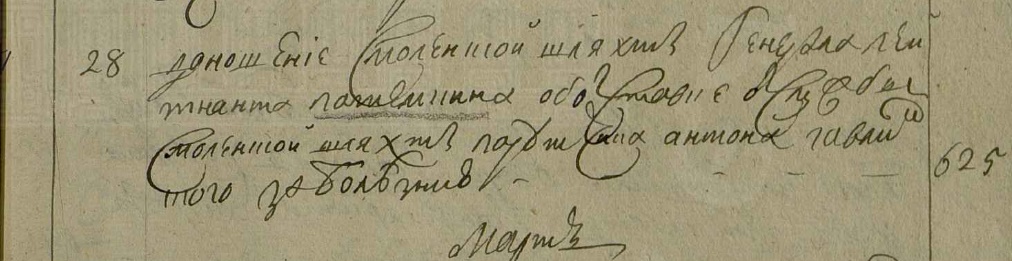 28 доношение Смоленской шляхты Генерала леи
тнанта потемкина обо ѿставке ѿ службы
Смоленской шляхты порутчика антона
того за болезнию 625
Мартъ